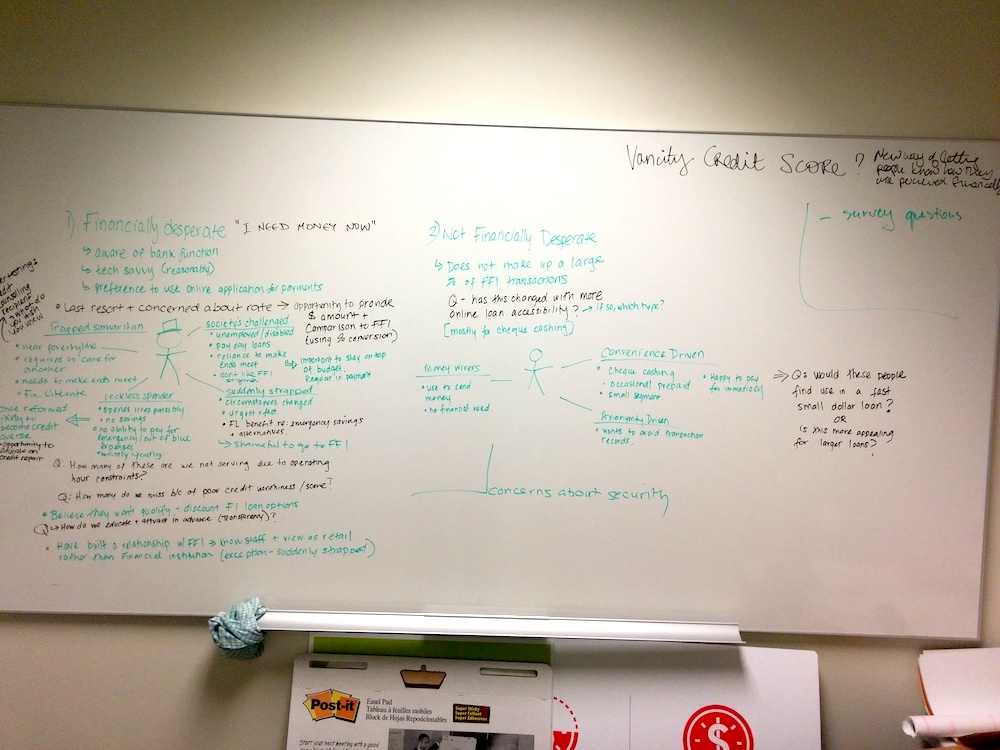 Vancity Credit Score ?
New way of letting
people know how they
are perceived financially
- survey questions
1) Financially desperate "I NEED MONEY NOW"
↳ aware of bank function
↳ tech savvy (reasonably)
↳ preference to use online application for payments
• Last resort + concerned about rate → opportunity to provide
$ amount +
Comparison to FFI
(using % conversion)
Trapped samaritan
• near poverty line
• required to care for
another
• needs to make ends meet
• Fin. Literate
society's challenged
• unemployed/disabled
• pay day loans
• reliance to make
ends meet
• don't like FFI
↳ important to stay on top
of budget.
Regular in payment
reckless spender
• spends irresponsibly
• no savings
• no ability to pay for
emergency/out of blue
expenses
• mostly young
once reformed
likely to
become credit
averse
• opportunity to
educate on
credit repair
suddenly strapped
• circumstances changed
• urgent + fast
• FL benefit re: emergency savings
+ alternatives.
↳ shameful to go to FFI
Q: How many of these are we not serving due to operating
hour constraints?
Q: How many do we miss b/c of poor credit worthiness/score?
• Believe they won't qualify - discount FI loan options
Q ↳ How do we educate + attract in advance (transparency)?
• Have built a relationship w/FFI → know staff + view as retail
rather than Financial institution (exception - suddenly strapped)
2) Not Financially Desperate
↳ Does not make up a large
% of FFI transactions
Q - has this changed with more
online loan accessibility? → if so, which type?
[mostly for cheque cashing]
Money wirers
• use to send
money
• no financial need.
Convenience Driven
• Cheque cashing
- occasional prepaid
• small segment.
• Happy to pay
for immediacy
Anonymity Driven
• wants to avoid transaction
records.
⇒ Q: Would these people
find use in a fast
small dollar loan?
OR
is this more appealing
for larger loans?
concerns about security
Post-it
Easel Pad
Tableau à feuilles mobiles
Block de Hojas Reposicionables
Super Sticky
Super Collant
Super Adhesivas
Start your next meeting with a good